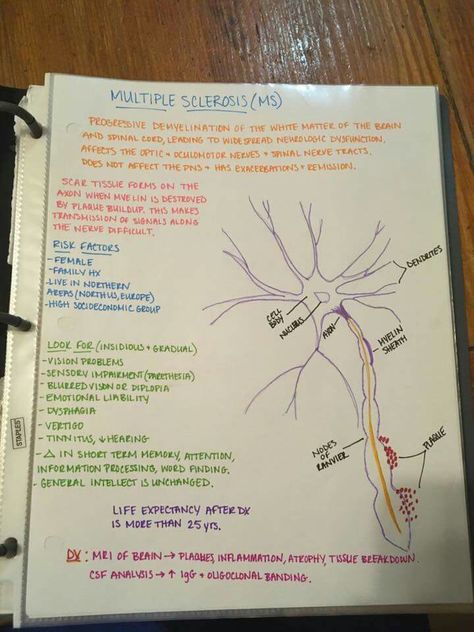 MULTIPLE SCLEROSIS (MS)
PROGRESSIVE DEMYELINATION OF THE WHITE MATTER OF THE BRAIN
AND SPINAL CORD, LEADING TO WIDESPREAD NEUROLOGIC DYSFUNCTION.
AFFECTS THE OPTIC + OCULOMOTOR NERVES + SPINAL NERVE TRACTS.
DOES NOT AFFECT THE PNS + HAS EXACERBATIONS + REMISSION.
SCAR TISSUE FORMS ON THE
AXON WHEN MYELIN IS DESTROYED
BY PLAQUE BUILDUP. THIS MAKES
TRANSMISSION OF SIGNALS ALONG
THE NERVE DIFFICULT.
RISK FACTORS
-FEMALE
-FAMILY HX
-LIVE IN NORTHERN
AREAS (NORTH US, EUROPE)
-HIGH SOCIOECONOMIC GROUP
DENDRITES
CELL
BODY
NUCLEUS
AXON
MYELIN
SHEATH
NODES
OF
RANVIER
PLAQUE
LOOK FOR (INSIDIOUS + GRADUAL)
-VISION PROBLEMS
-SENSORY IMPAIRMENT (PARETHESIA)
-BLURRED VISON OR DIPLOPIA
-EMOTIONAL LIABILITY
-DYSPHAGIA
-VERTIGO
-TINNITUS, ↓ HEARING
-Δ IN SHORT TERM MEMORY, ATTENTION,
INFORMATION PROCESSING, WORD FINDING.
-GENERAL INTELLECT IS UNCHANGED.
STAPLES
LIFE EXPECTANCY AFTER DX
IS MORE THAN 25 YRS.
DX: MRI OF BRAIN → PLAQUES, INFLAMMATION, ATROPHY, TISSUE BREAKDOWN.
CSF ANALYSIS → ↑ IgG + OLIGOCLONAL BANDING.